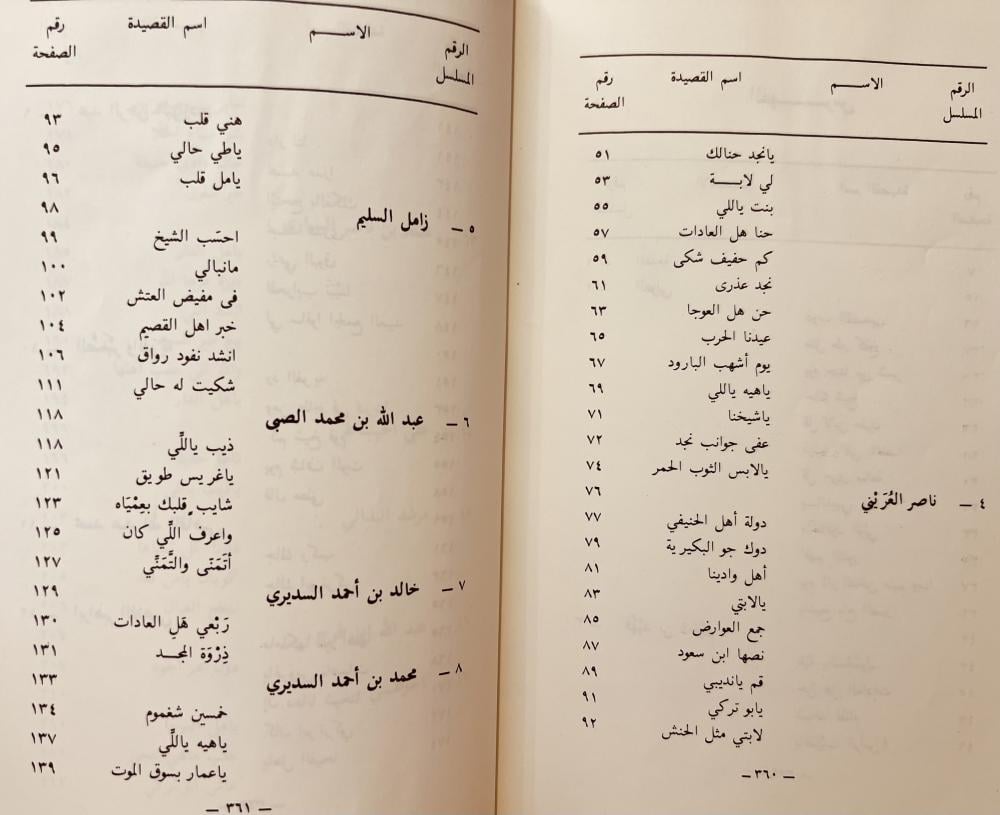 الرقم المسلسل الاســـم اسم القصيدة رقم الصفحة
يانجد حنالك ٥١
لي لابـــة ٥٣
بنت ياللي ٥٥
حنا هل العادات ٥٧
كم حفيف شكى ٥٩
نجد عذرى ٦١
حن هل العوجا ٦٣
عيدنا الحرب ٦٥
يوم أشهب البارود ٦٧
ياهيه ياللي ٦٩
ياشيخنا ٧١
عفى جوانب نجد ٧٢
يالابس الثوب الحمر ٧٤
٤ ــ ناصر العُرَيْني ٧٦
دولة أهل الحنيفي ٧٧
دوك جو البكيرية ٧٩
أهل وادينا ٨١
يالابتي ٨٣
جمع العوارض ٨٥
نصها ابن سعود ٨٧
قم يانديبي ٨٩
يابو تركي ٩١
لابتي مثل الحنش ٩٢
ــ ٣٦٠ ــ
الرقم المسلسل الاســـم اسم القصيدة رقم الصفحة
هني قلب ٩٣
ياطي حالي ٩٥
يامل قلب ٩٦
٥ ــ زامل السليم ٩٨
احسَب الشيخ ٩٩
مانبالي ١٠٠
فى مفيض العتش ١٠٢
خبر اهل القصيم ١٠٤
انشد نفود رواق ١٠٦
شكيت له حالي ١١١
٦ ــ عبد الله بن محمد الصبي ١١٨
ذيب ياللَّي ١١٨
ياغريس طويق ١٢١
شايب قلبك بعِمْيَاه ١٢٣
واعرف اللَّي كان ١٢٥
أتَمَنّى والتَّمَنِّي ١٢٧
٧ ــ خالد بن أحمد السديري ١٢٩
رَبْعي هَلِ العادات ١٣٠
ذِرْوَة المجـد ١٣١
٨ ــ محمد بن أحمد السديري ١٣٣
خمسين شغموم ١٣٤
ياهيه ياللَّي ١٣٧
ياعمار بسوق الموت ١٣٩
ــ ٣٦١ ــ